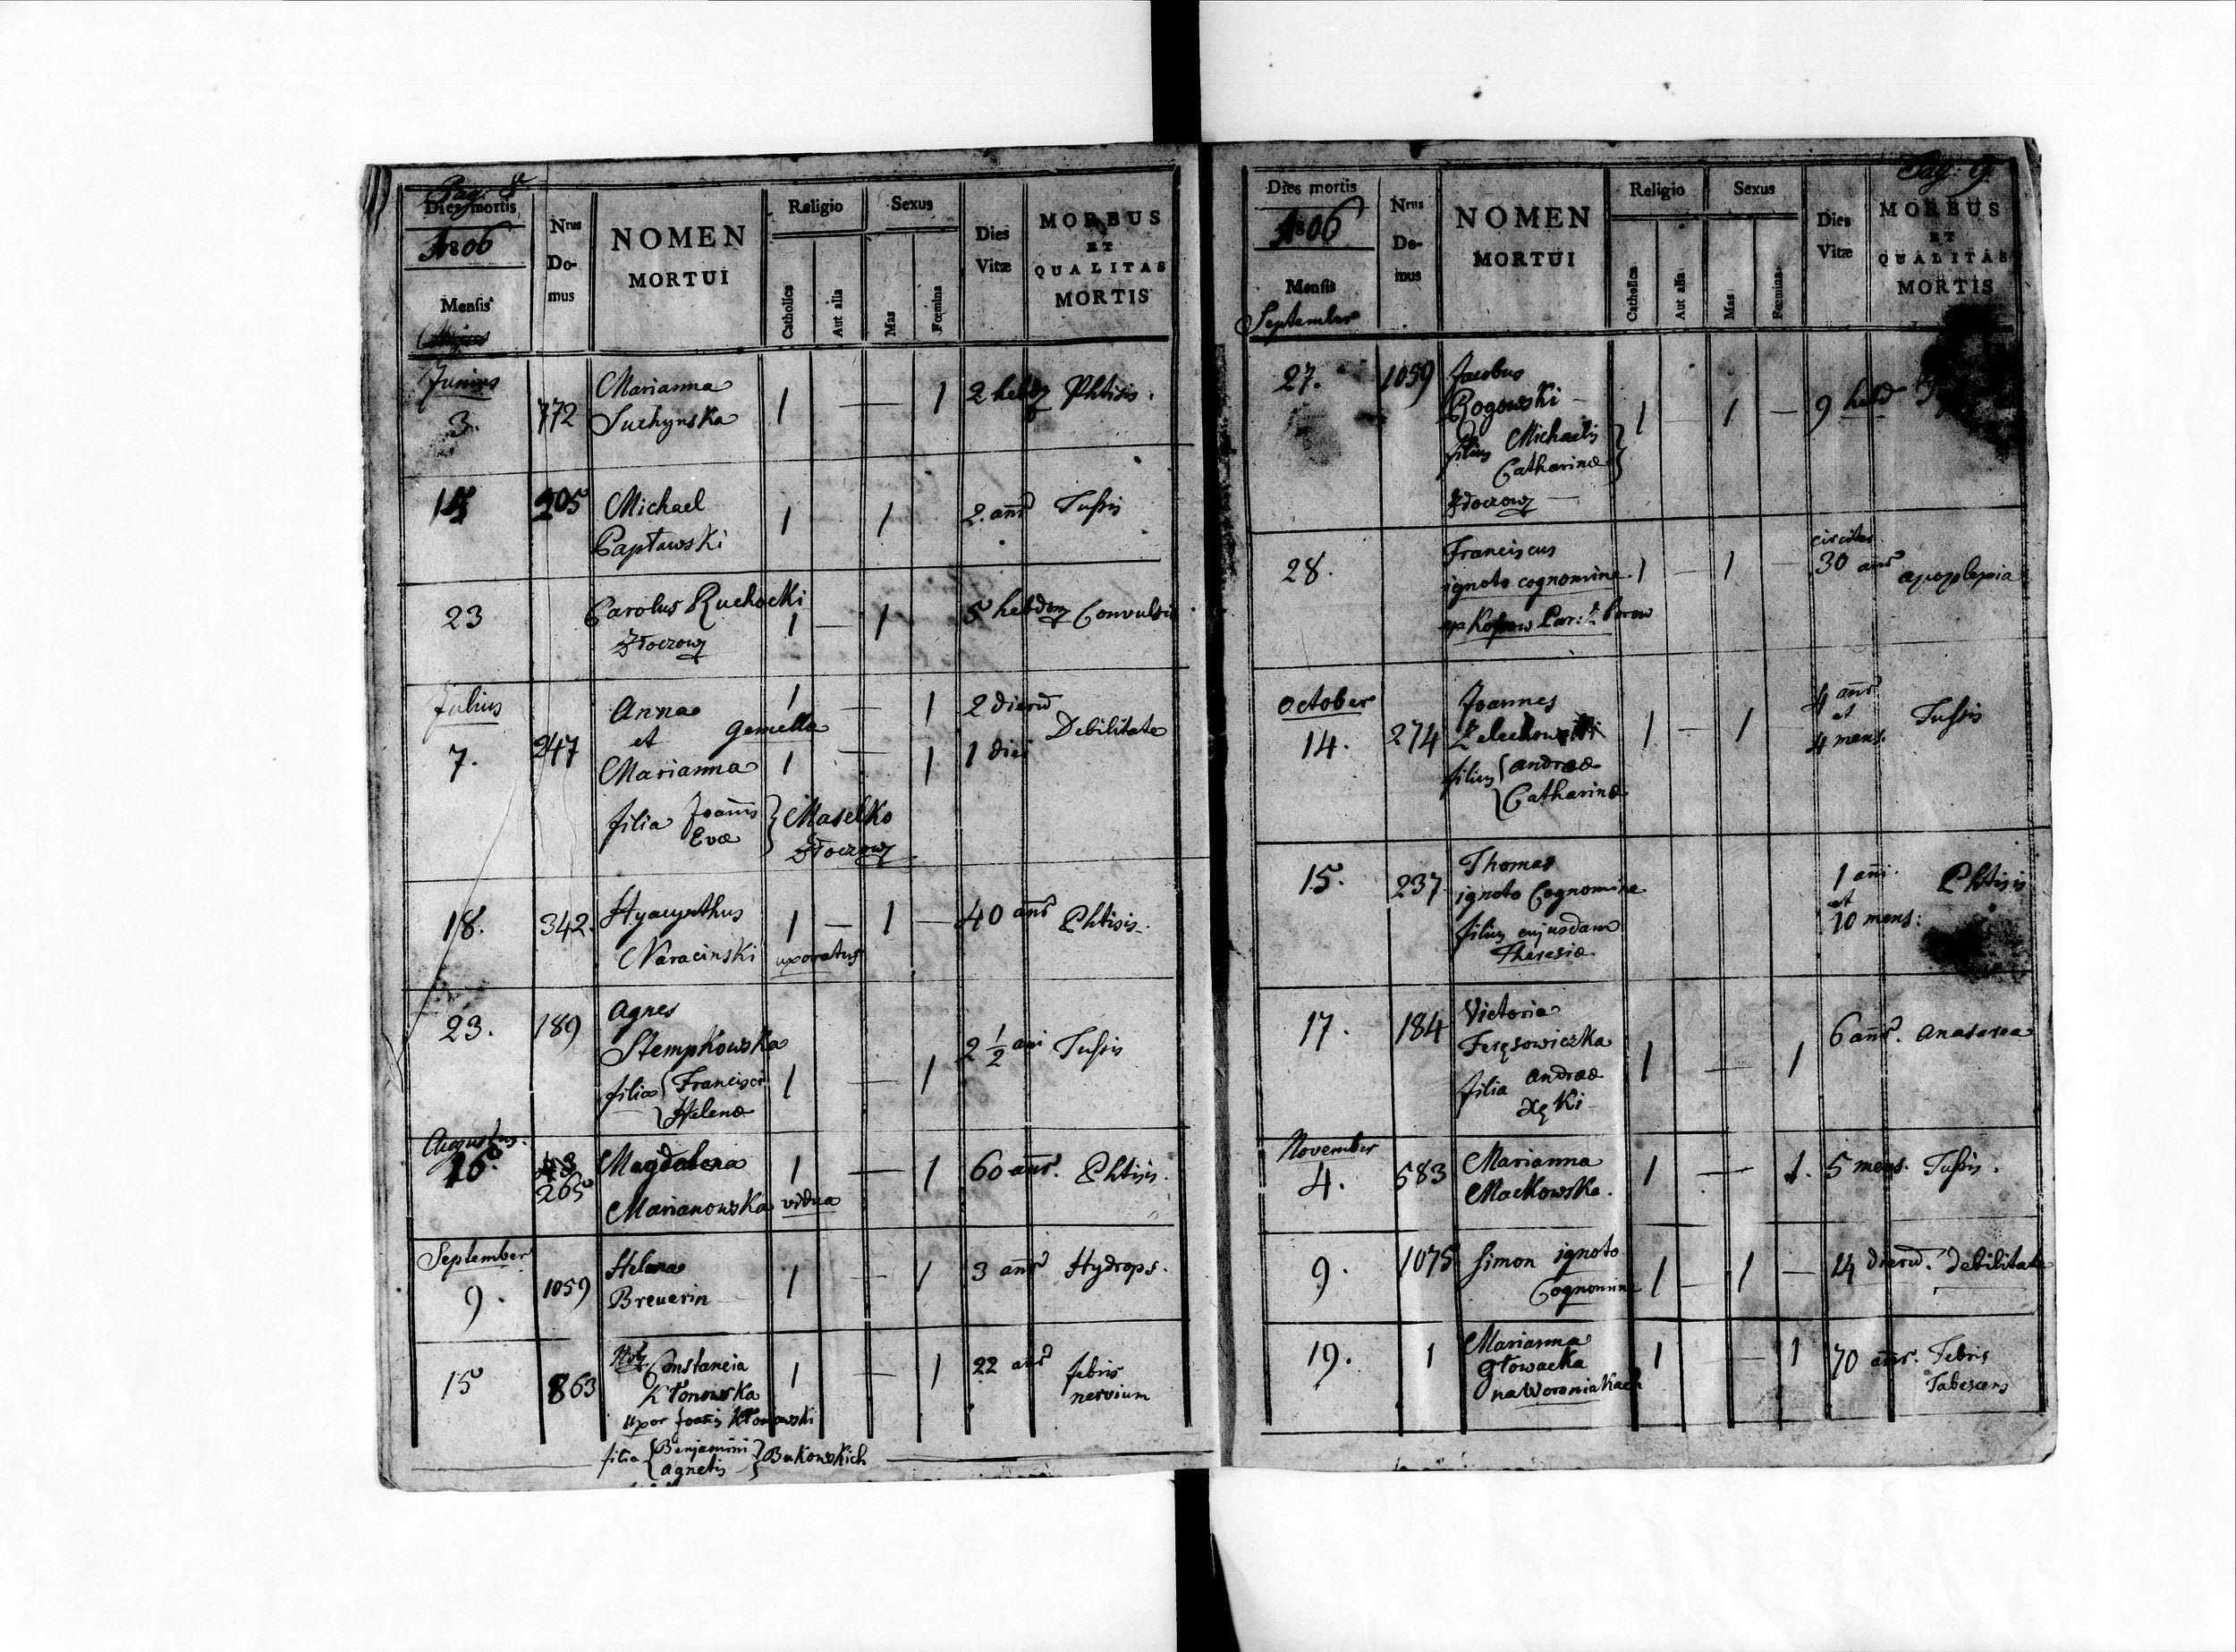 Pag: 8
Dies mortis
1806
Mensis
Nrus
Do-
mus
NOMEN
MORTUI
Religio
Catholica
Aut alia
Sexus
Mas
Fœmina
Dies
Vitæ
MORBUS
ET
QUALITAS
MORTIS
Junius
3. 772 Marianna 1 — 1 2 hebd Phtisis.
Suchynska
14 905 Michael 1 1 2. anñ Tussis
Captowski
23 Carolus Ruchocki 1 — 1 5 hebdom Convulsio
Złoczow
Julius
7. 247 Anna 1 — 1 2 dierū Debilitate
et Gemella
Marianna 1 — 1 1 diei
filia Joañis } Maselko
Evæ
Złoczow
18. 342. Hyacynthus 1 — 1 — 40 anñ Phtisis.
Naracinski uxoratus
23. 189 Agnes
Stempkowska 1 — 1 2 1/2 ani Tussis
filia { Francisci
Helenæ
Augustus.
16. 265 Magdalena 1 — 1 60 anñ. Phtisis.
Marianowska vidua
September
9. 1059 Helena 1 — 1 3 anñ Hydrops.
Breuerin
15 863 Constancia 1 — 1 22 anñ febris
Kłonowska nervium
uxor Joañis Kłonowski
filia { Benjamini } Bukowskich
Agnetis
Pag: 9.
Dies mortis
1806
Mensis
September
Nrus
Do-
mus
NOMEN
MORTUI
Religio
Catholica
Aut alia
Sexus
Mas
Fœmina
Dies
Vitæ
MORBUS
ET
QUALITAS
MORTIS
27. 1059 Jacobus
Rogowski 1 — 1 — 9 hebd
filius Michaelis }
Catharinæ
Złoczow
28. Franciscus 1 — 1 — circiter
ignoto cognomine. 30 anñ apoplexia
ex Par:
October
14. 274 Joannes 1 — 1 4 anñ. Tussis
Zelechowski et
filius { Andreæ 4 mens.
Catharinæ
15. 237. Thomas 1 añi. Phtisis
ignoto Cognomine et
filius cujusdam 10 mens:
Theresiæ
17. 184 Victoria 6 anñ. Anasarca
1 — 1
filia Andreæ
November
4. 583 Marianna 1 — 1. 5 mens. Tussis.
Mackowska.
9. 1075 Simon ignoto 1 — 1 — 14 dierū. Debilitate
Cognomine
19. 1 Marianna 1 — 1 70 anñr. Febris
Głowacka Tabescens
na Woroniakach